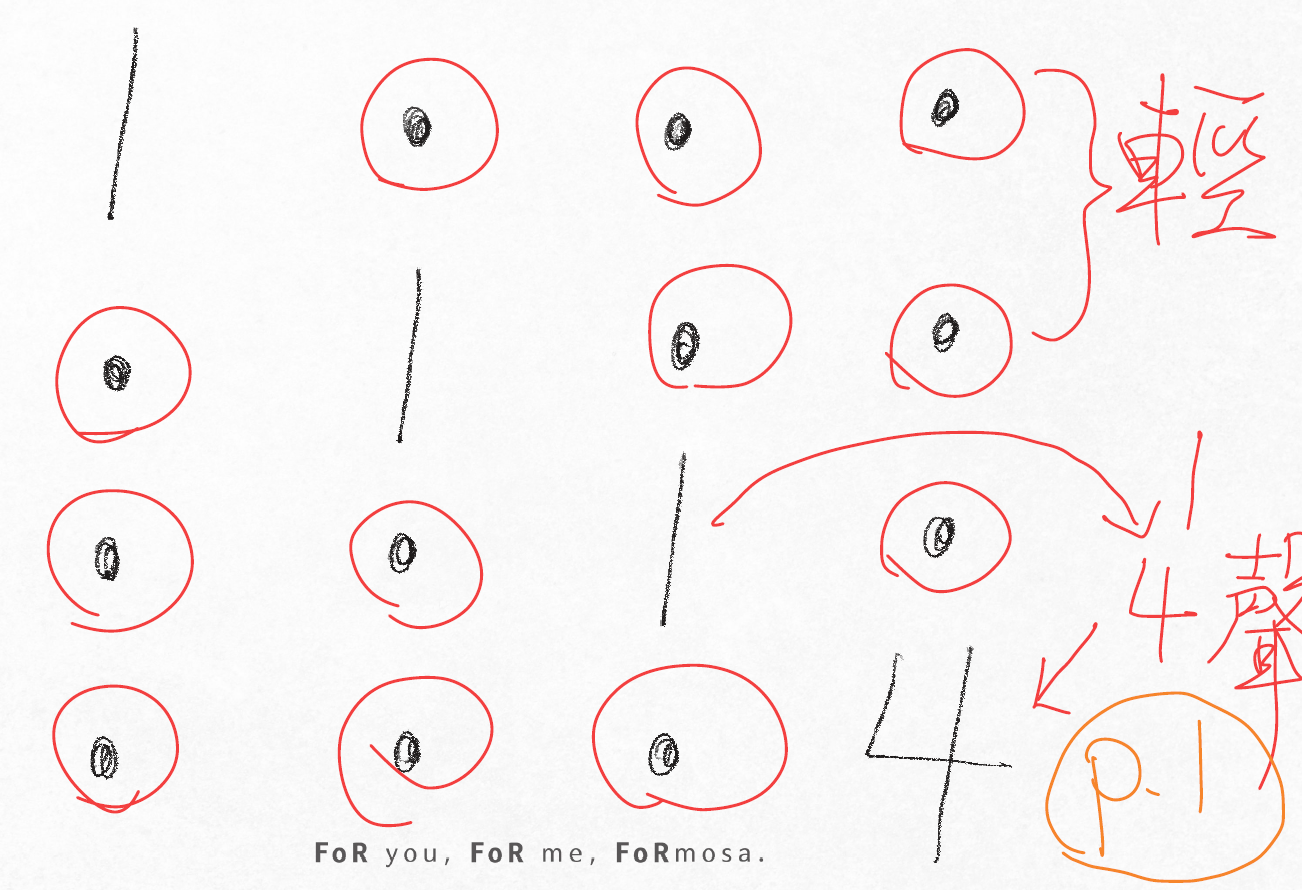 1 • • • 輕
• 1 • •
• • 1 • 1
4 聲
• • • 4
p.1
FoR you, FoR me, FoRmosa.